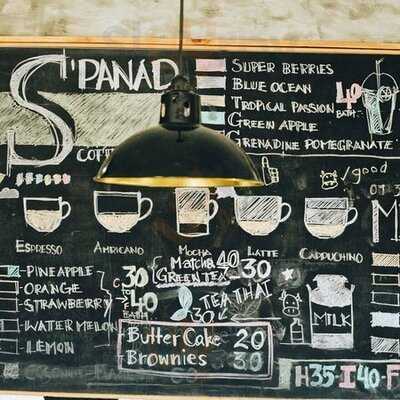 S'PANAD
SUPER BERRIES
BLUE OCEAN
TROPICAL PASSION
GREEN APPLE
GRENADINE POMEGRANATE
40
BATH
good
ESPRESSO
AMRICANO
MOCHA
LATTE
CAPPUCHINO
Matcha 40
GREEN TEA
30
- PINEAPPLE
- ORANGE
- STRAWBERRY
- WATER MELON
- LEMON
30
TO
40
BATH
TEA THAI
30
MILK
Butter Cake 20
Brownies 30
H35-I40-F